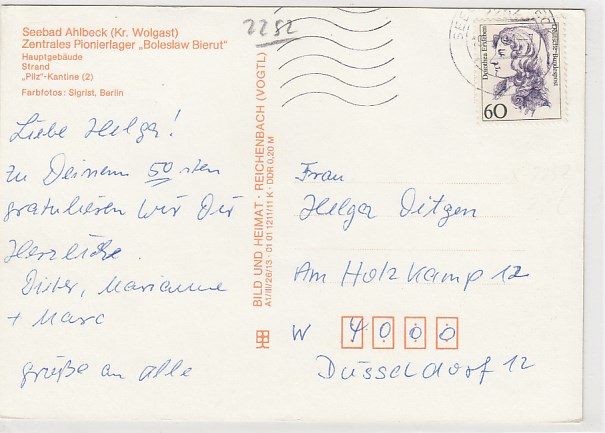 Seebad Ahlbeck (Kr. Wolgast)
Zentrales Pionierlager „Bolesław Bierut“
Hauptgebäude
Strand
„Pilz“-Kantine (2)
Farbfotos: Sigrist, Berlin
2282
Liebe Helga!
zu Deinem 50 sten
gratulieren wir Dir
Herzliche.
Dieter, Marianne
+ Marc
grüße an alle
BILD UND HEIMAT · REICHENBACH (VOGTL)
A1/III/26/13 · 01 01 1211/11 K · DDR 0,20 M
Dorothea Erxleben
Deutsche Bundespost
60
Frau
Helga Ditzen
Am Holzkamp 12
W 4000
Düsseldorf 12